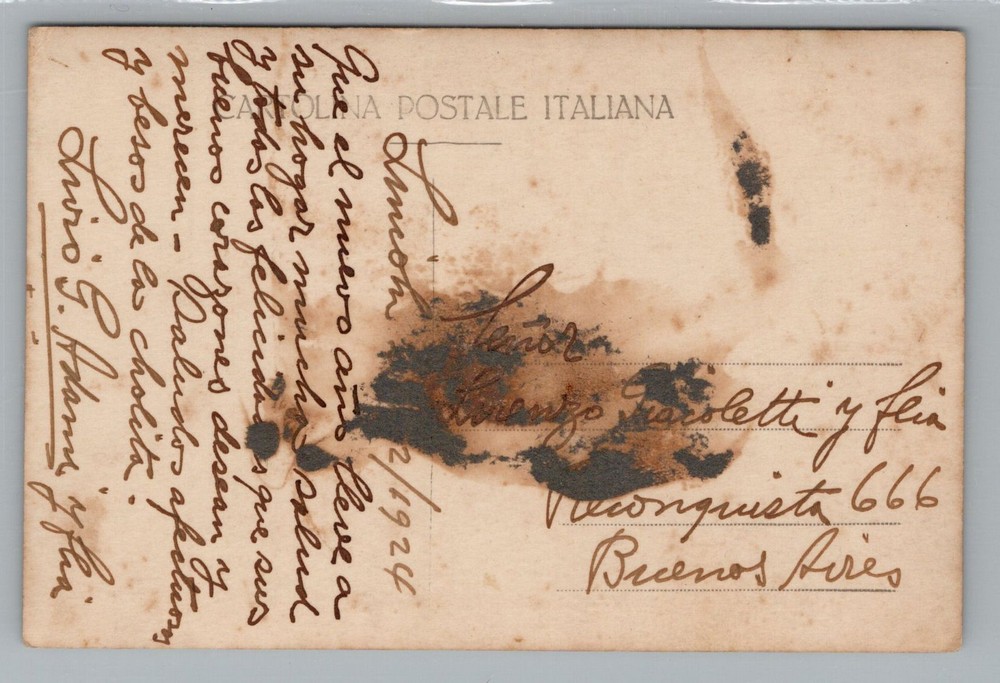 CARTOLINA POSTALE ITALIANA
Junión 2/1924
Que el nuevo año lleve a
su hogar mucha salud
y todas las felicidades que sus
buenos corazones desean y
merecen - Saludos afectuosos
y besos de la cholita.
Livio G. Adami y flia
Señor
Lorenzo Giacoletti y flia
Reconquista 666
Buenos Aires